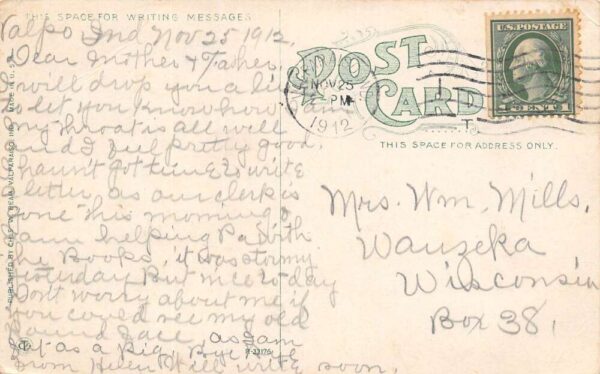 THIS SPACE FOR WRITING MESSAGES
Valpo Ind Nov 25 1912,
Dear Mother & Father,
I will drop you a line
to let you know how
my throat is all well
and I feel pretty good.
haun't got time to write
letter, as our clerk is
gone this morning &
I am helping Pa with
the Books, it was stormy
yesterday But nice to day
Dont worry about me if
you could see my old
round face, as I am
fat as a pig, Bye Bye
from Helen Will write soon.
PUBLISHED BY VALPARAISO, IND. MADE IN U.S.A.
R-23176
POST
CARD
THIS SPACE FOR ADDRESS ONLY.
NOV 25
PM
1912
1
T.
U.S. POSTAGE
1 CENT 1
Mrs. Wm. Mills,
Wauzeka
Wisconsin
Box 38,